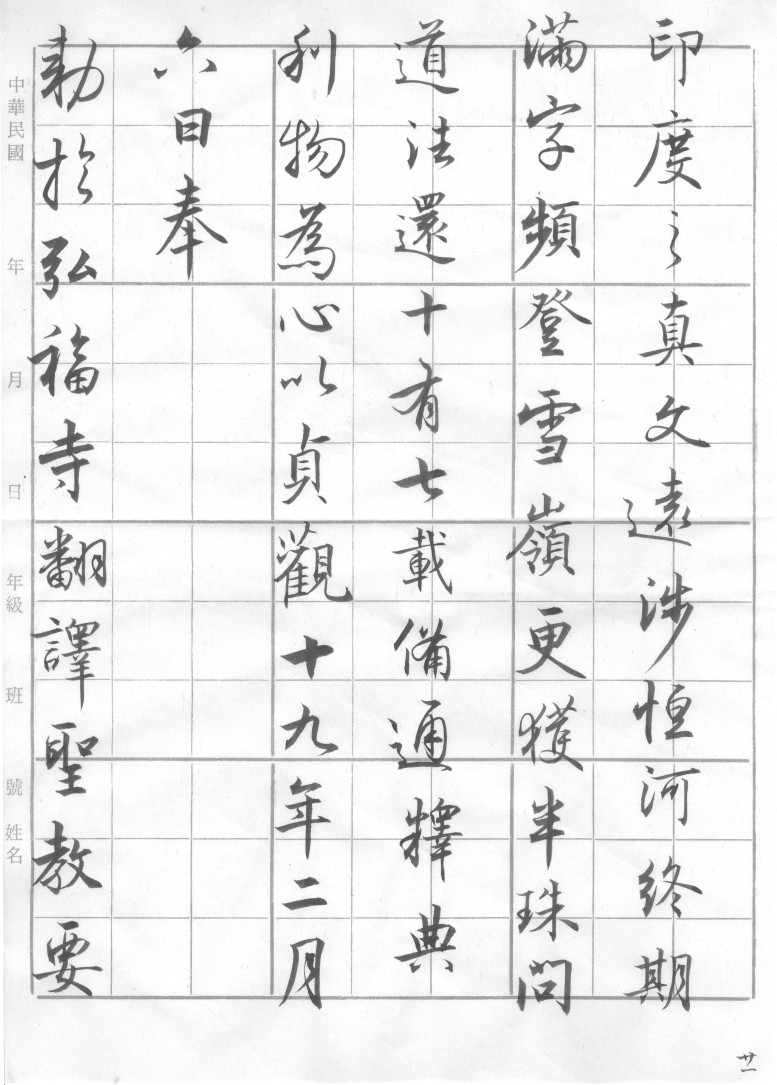 印度之真文遠涉恒河終期
滿字頻登雪嶺更獲半珠問
道法還十有七載備通釋典
利物為心以貞觀十九年二月
六日奉
勅於弘福寺翻譯聖教要
中華民國 年 月 日 年級 班 號 姓名
廿一